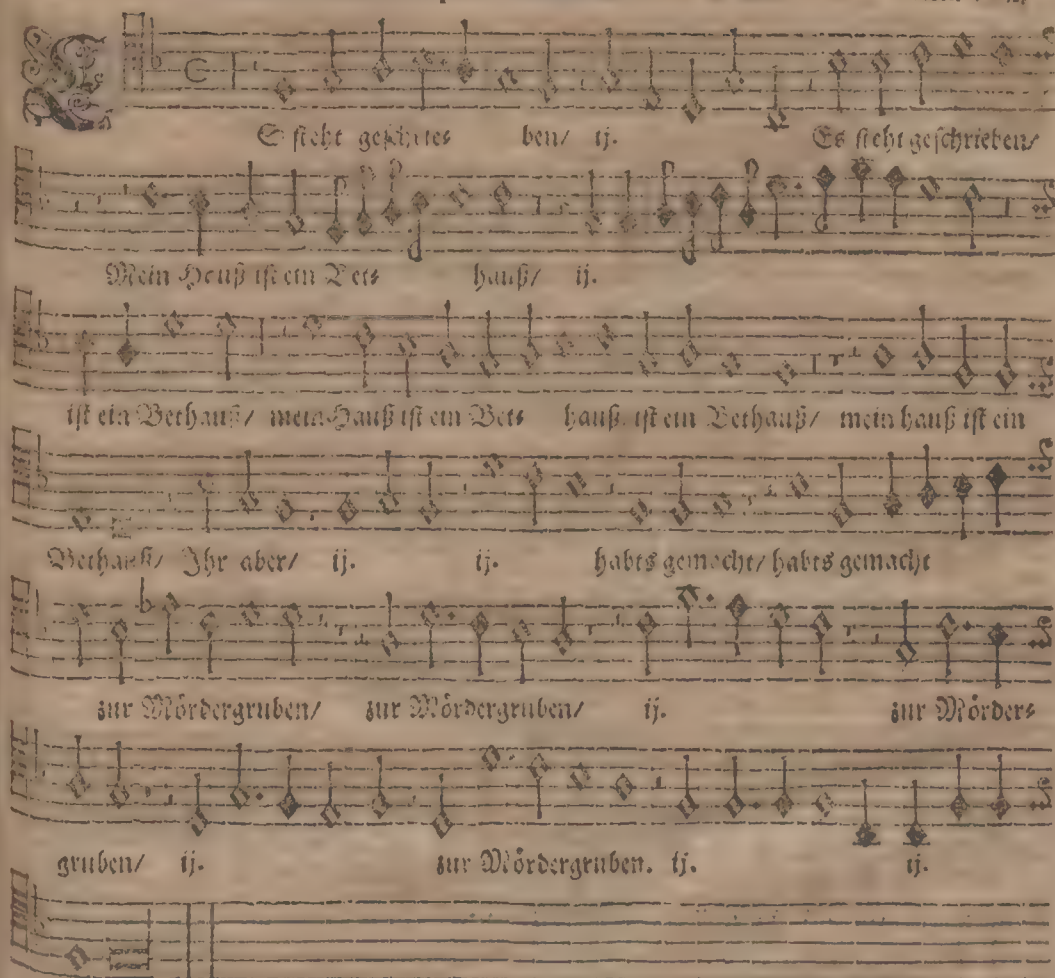 ES steht geschries ben/ ij. Es steht geschrieben/
Mein Hauß ist ein Bets hauß/ ij.
ist ein Bethauß/ mein Hauß ist ein Bets hauß. ist ein Bethauß/ mein hauß ist ein
Bethauß/ Ihr aber/ ij. ij. habts gemacht/ habts gemacht
zur Mördergruben/ zur Mördergruben/ ij. zur Mörders
gruben/ ij. zur Mördergruben. ij. ij.